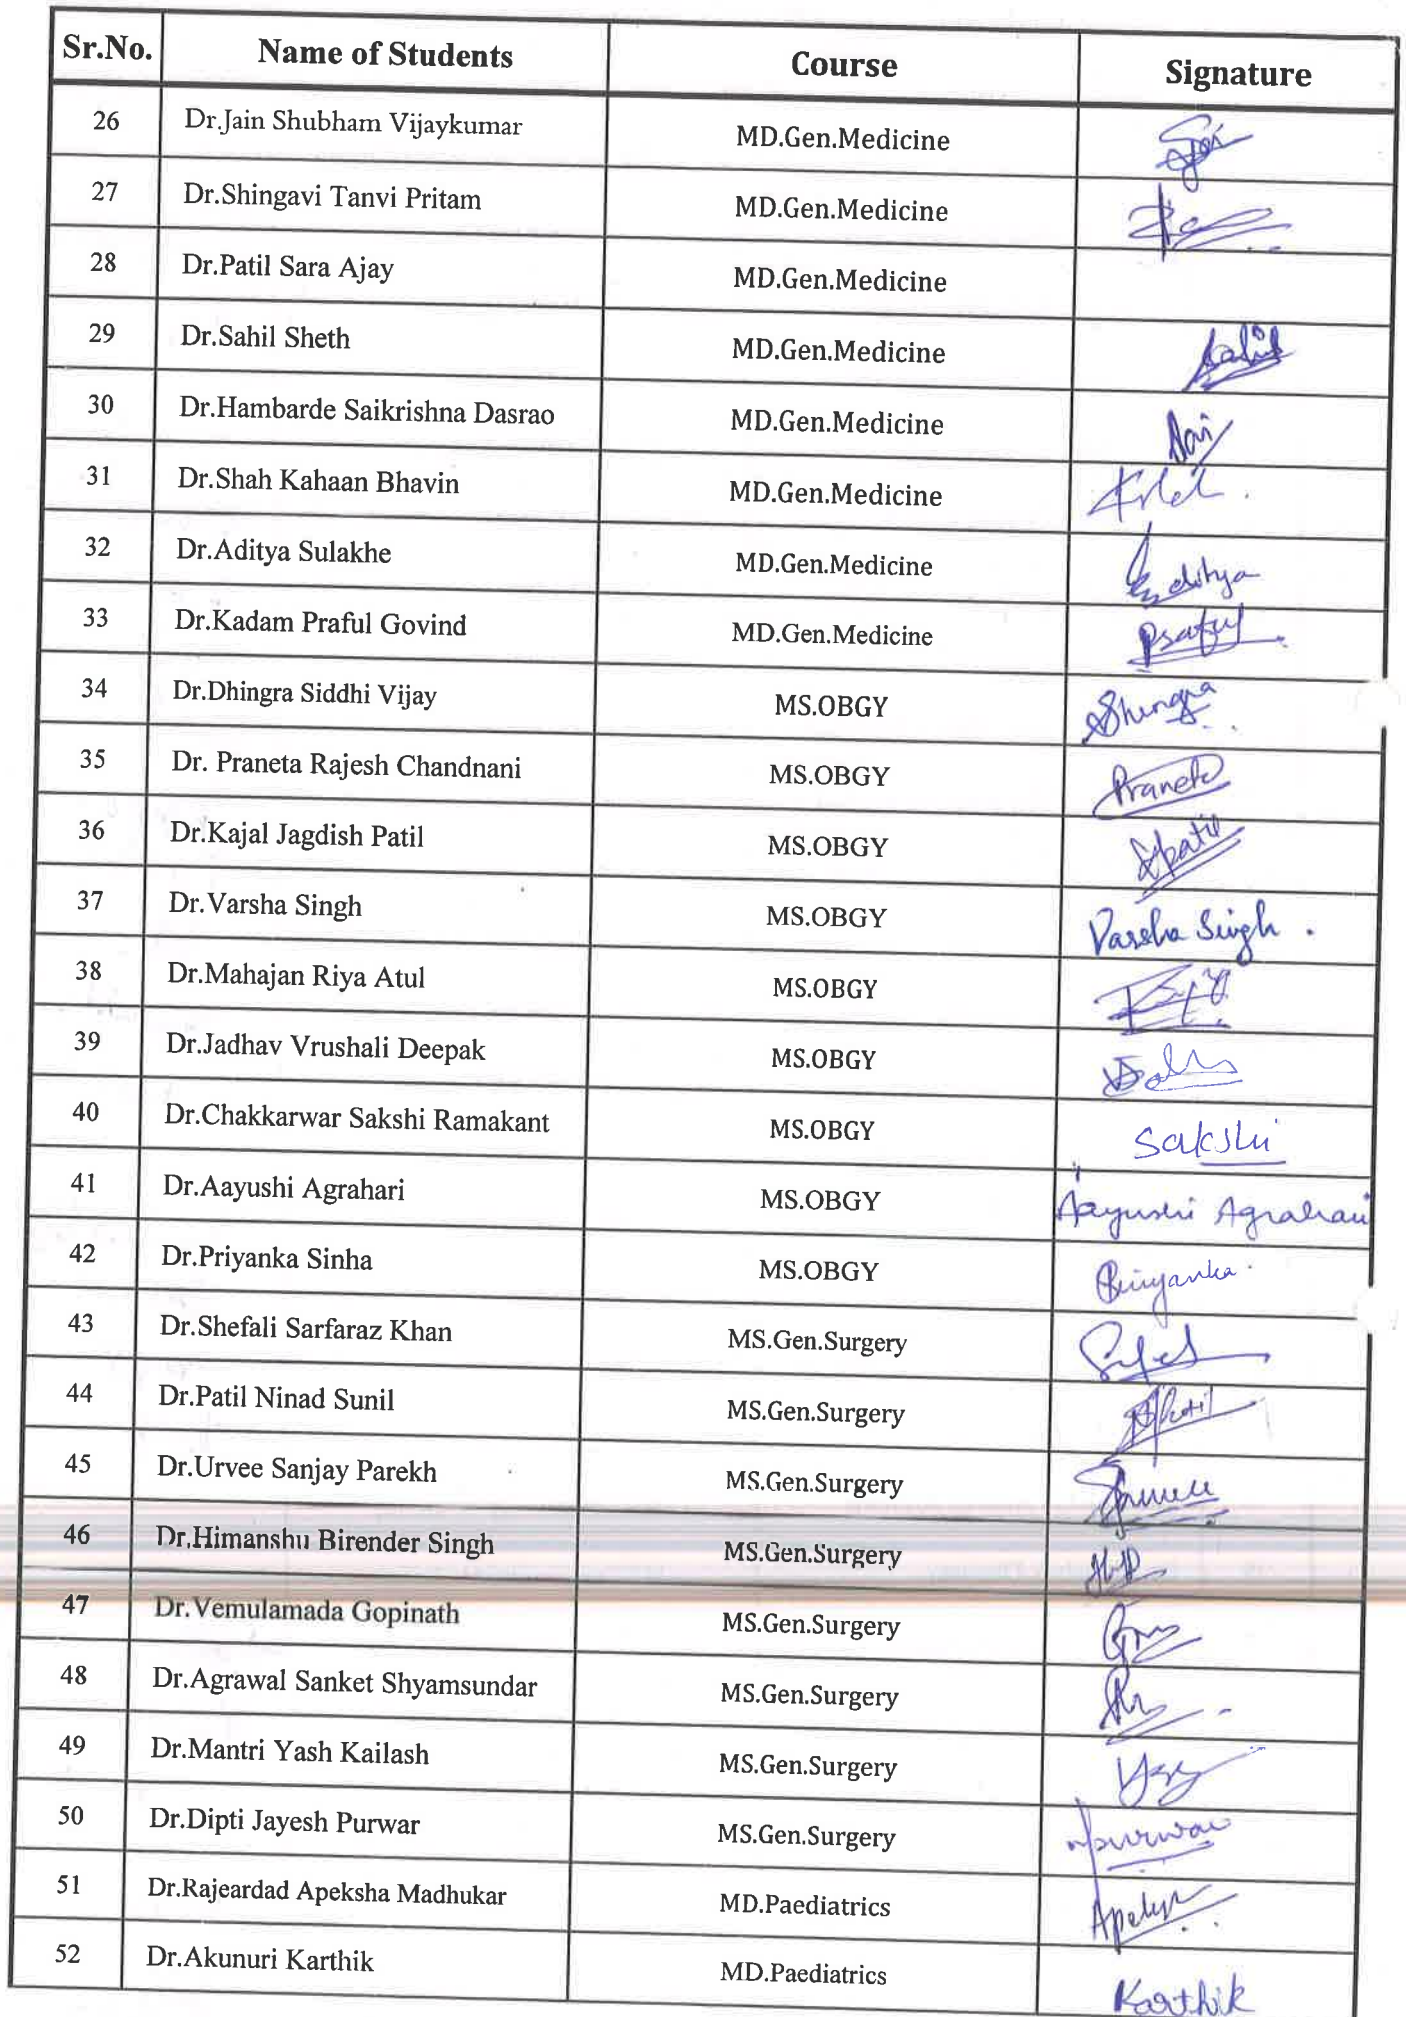 Sr.No. Name of Students Course Signature
26 Dr.Jain Shubham Vijaykumar MD.Gen.Medicine
27 Dr.Shingavi Tanvi Pritam MD.Gen.Medicine
28 Dr.Patil Sara Ajay MD.Gen.Medicine
29 Dr.Sahil Sheth MD.Gen.Medicine Sahil
30 Dr.Hambarde Saikrishna Dasrao MD.Gen.Medicine Sai
31 Dr.Shah Kahaan Bhavin MD.Gen.Medicine
32 Dr.Aditya Sulakhe MD.Gen.Medicine Aditya
33 Dr.Kadam Praful Govind MD.Gen.Medicine Praful
34 Dr.Dhingra Siddhi Vijay MS.OBGY
35 Dr. Praneta Rajesh Chandnani MS.OBGY Praneta
36 Dr.Kajal Jagdish Patil MS.OBGY
37 Dr.Varsha Singh MS.OBGY Varsha Singh .
38 Dr.Mahajan Riya Atul MS.OBGY
39 Dr.Jadhav Vrushali Deepak MS.OBGY
40 Dr.Chakkarwar Sakshi Ramakant MS.OBGY Sakshi
41 Dr.Aayushi Agrahari MS.OBGY Aayushi Agrahari
42 Dr.Priyanka Sinha MS.OBGY Priyanka
43 Dr.Shefali Sarfaraz Khan MS.Gen.Surgery
44 Dr.Patil Ninad Sunil MS.Gen.Surgery
45 Dr.Urvee Sanjay Parekh MS.Gen.Surgery
46 Dr.Himanshu Birender Singh MS.Gen.Surgery
47 Dr.Vemulamada Gopinath MS.Gen.Surgery
48 Dr.Agrawal Sanket Shyamsundar MS.Gen.Surgery
49 Dr.Mantri Yash Kailash MS.Gen.Surgery
50 Dr.Dipti Jayesh Purwar MS.Gen.Surgery
51 Dr.Rajeardad Apeksha Madhukar MD.Paediatrics
52 Dr.Akunuri Karthik MD.Paediatrics Karthik